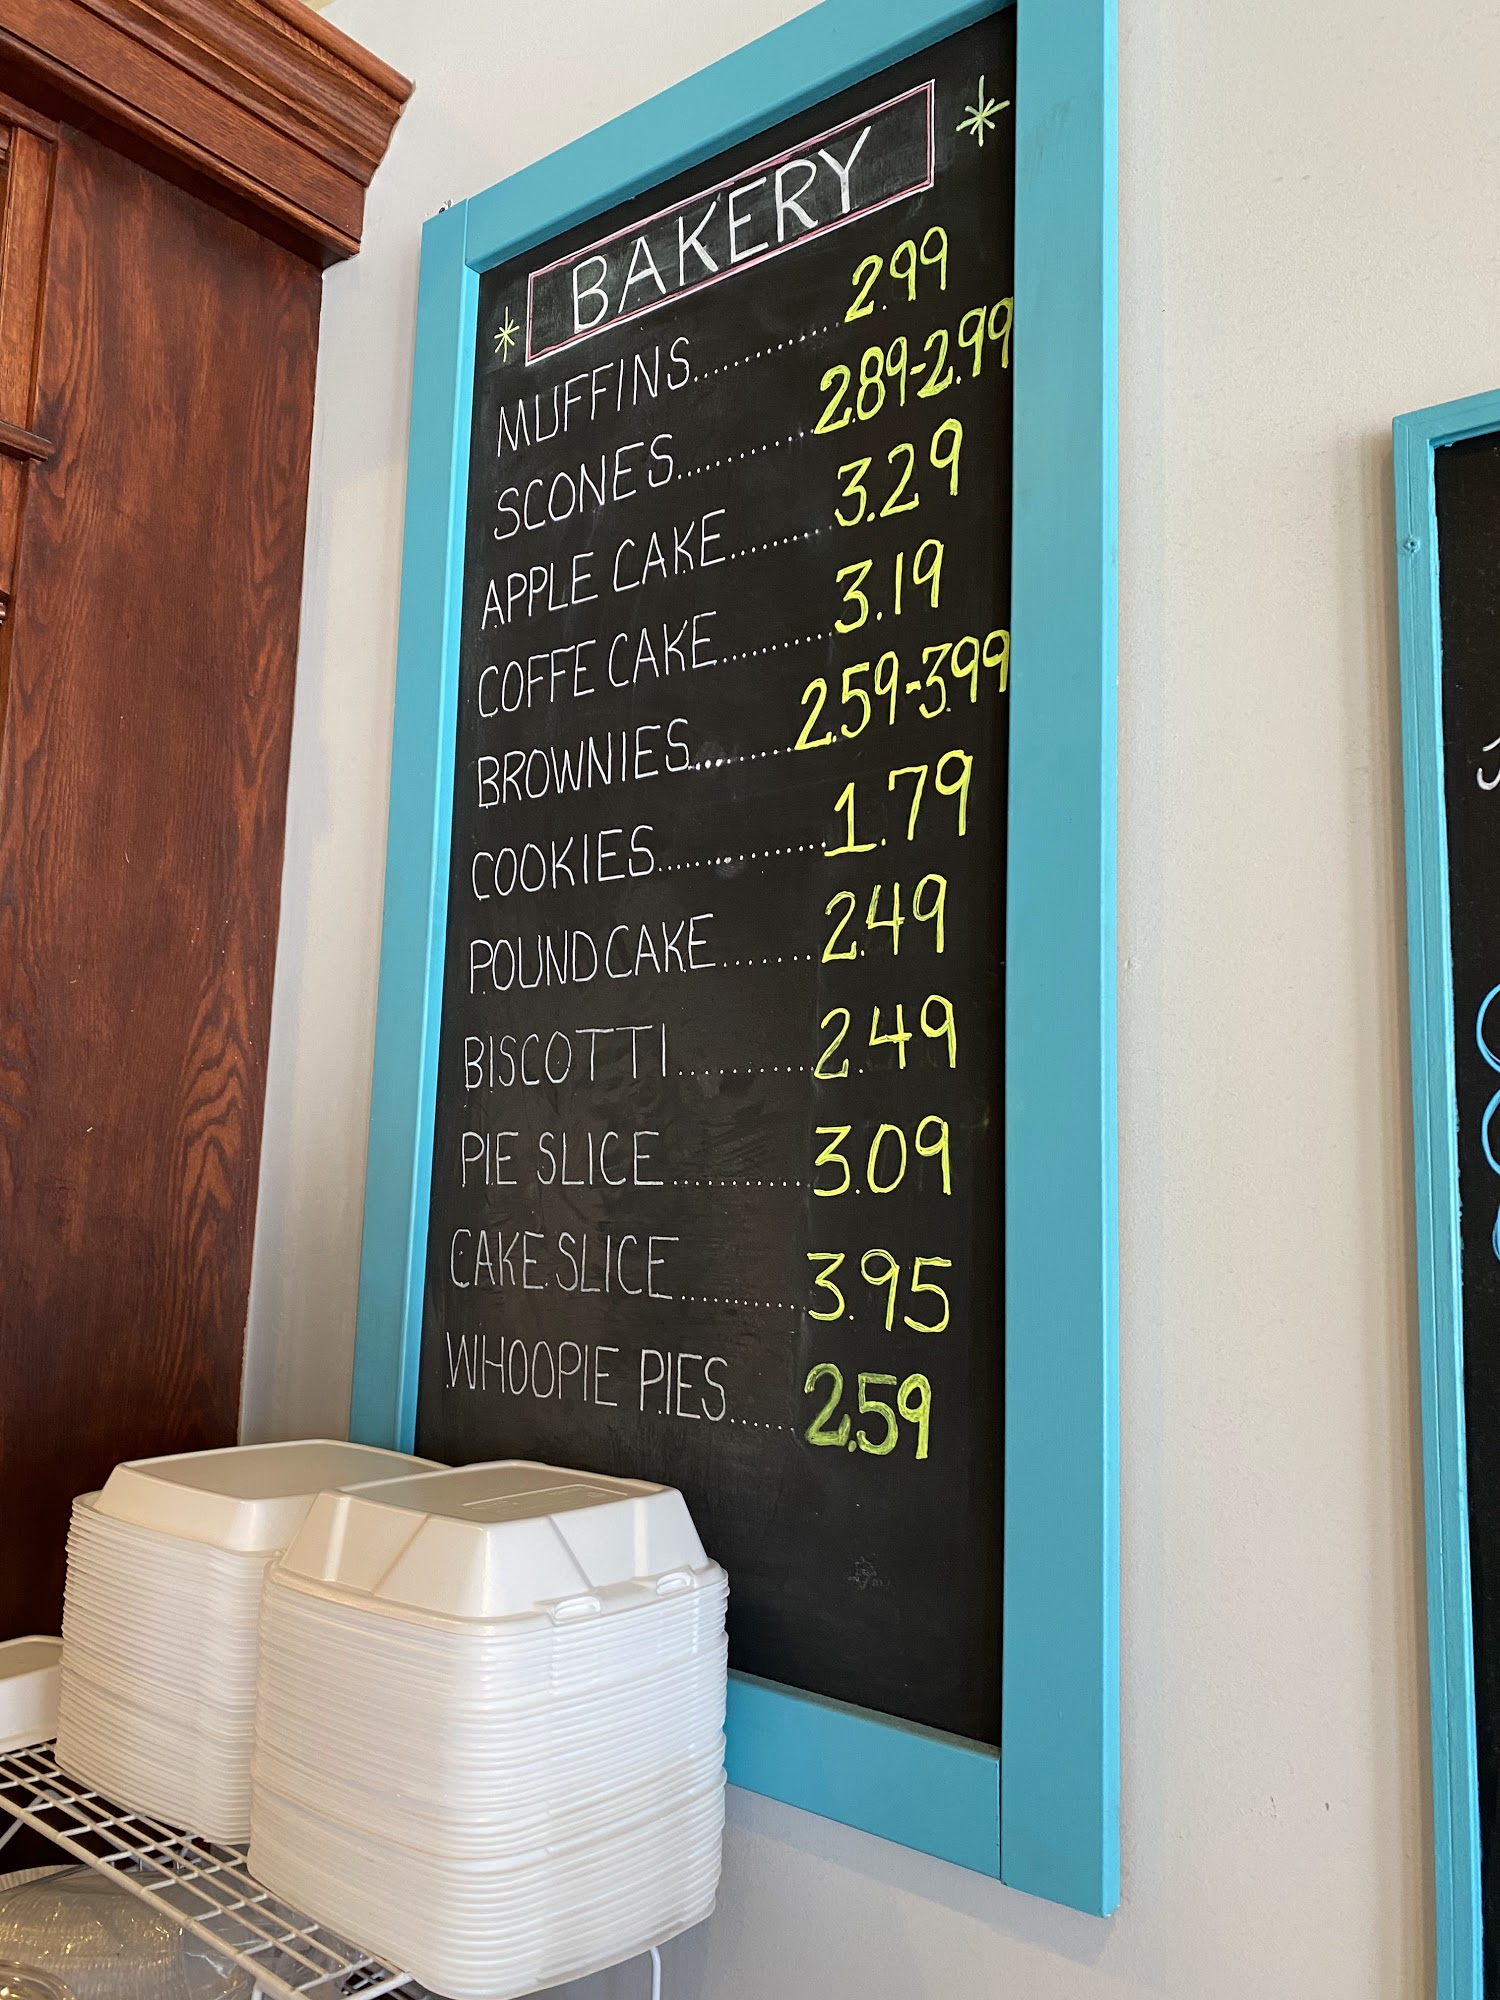 BAKERY
MUFFINS 2.99
SCONES 2.89-2.99
APPLE CAKE 3.29
COFFE CAKE 3.19
BROWNIES 2.59-3.99
COOKIES 1.79
POUND CAKE 2.49
BISCOTTI 2.49
PIE SLICE 3.09
CAKE SLICE 3.95
WHOOPIE PIES 2.59